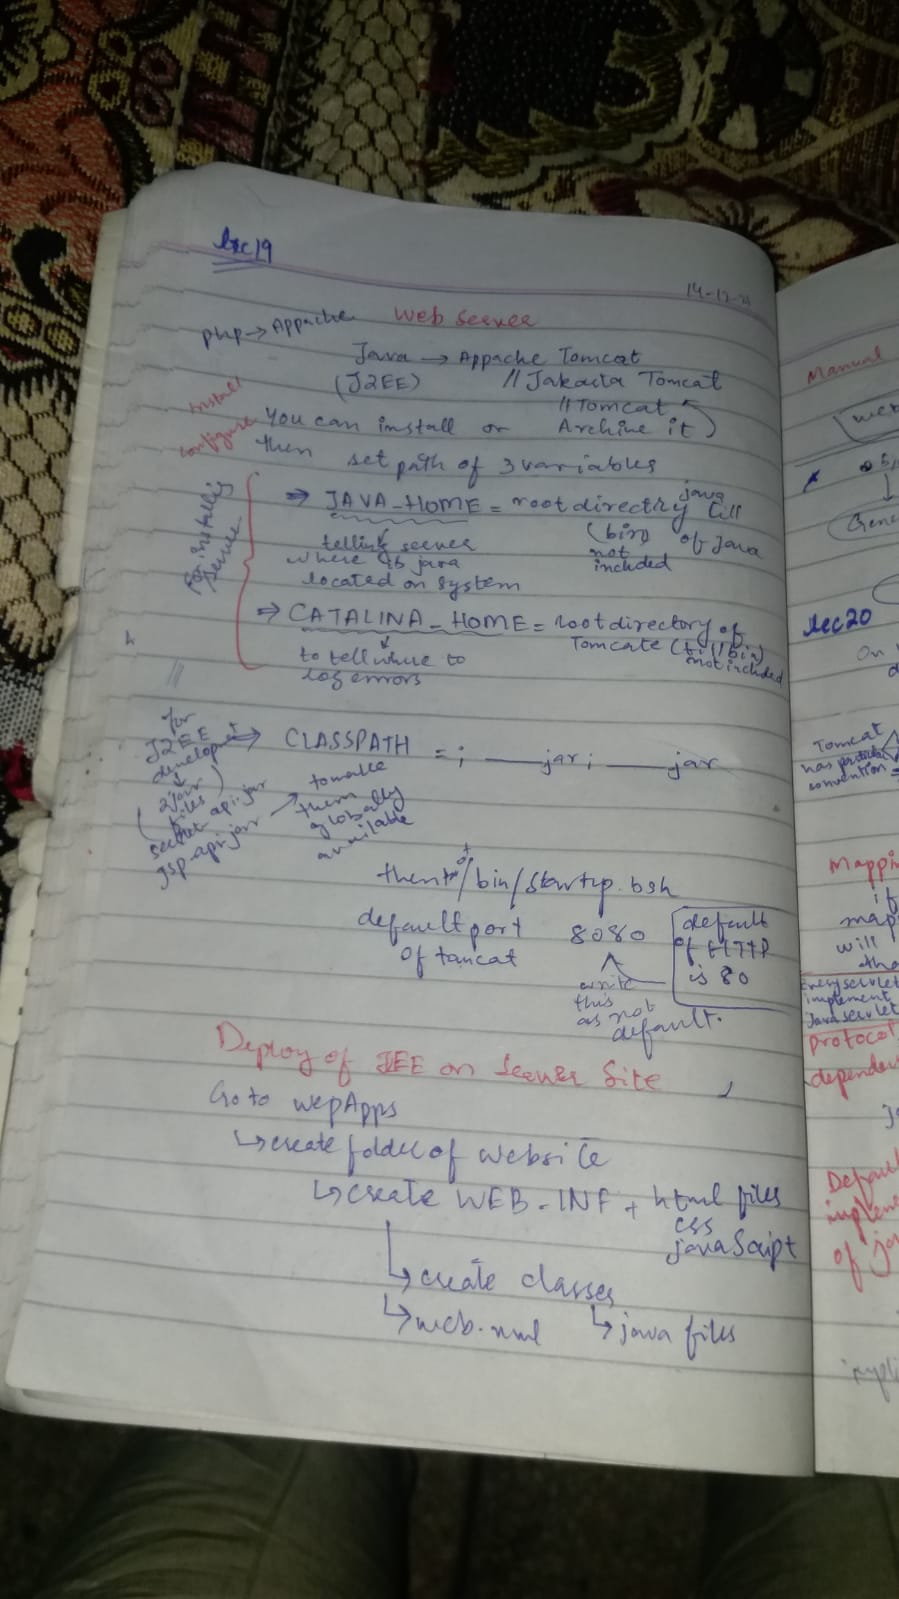 Lec 19
14-12-21
Web Server
php → Appache
Java → Appache Tomcat
(J2EE) // Jakarta Tomcat
// Tomcat
Install
configure
You can install or Archive it
then set path of 3 variables
For installing server
⇒ JAVA_HOME = root directry till java
(bin) of Java
not included
telling server
where is java
located on system
⇒ CATALINA_HOME = root directory of
Tomcate (till bin)
not included
to tell where to
log errors
for
J2EE
development ⇒ CLASSPATH = ; ___jar ; ___jar
2 jar
files
servlet-api.jar
jsp-api.jar → to make
them
globally
available
then /bin/startup.bsh
default port 8080
of tomcat
default
of HTTP
is 80
write
this
as not
default.
Deploy of JEE on Server Site
Go to wepApps
↳ create folder of website
↳ create WEB-INF + html files
css
javaScript
↳ create classes
↳ web.xml ↳ java files
Manual
Lec 20
On
Tomcat
has particular
convention
Mappin
if
map
will
tha
Every servlet
implement
Java servlet
protocol
dependen
Defaul
implem
of ja